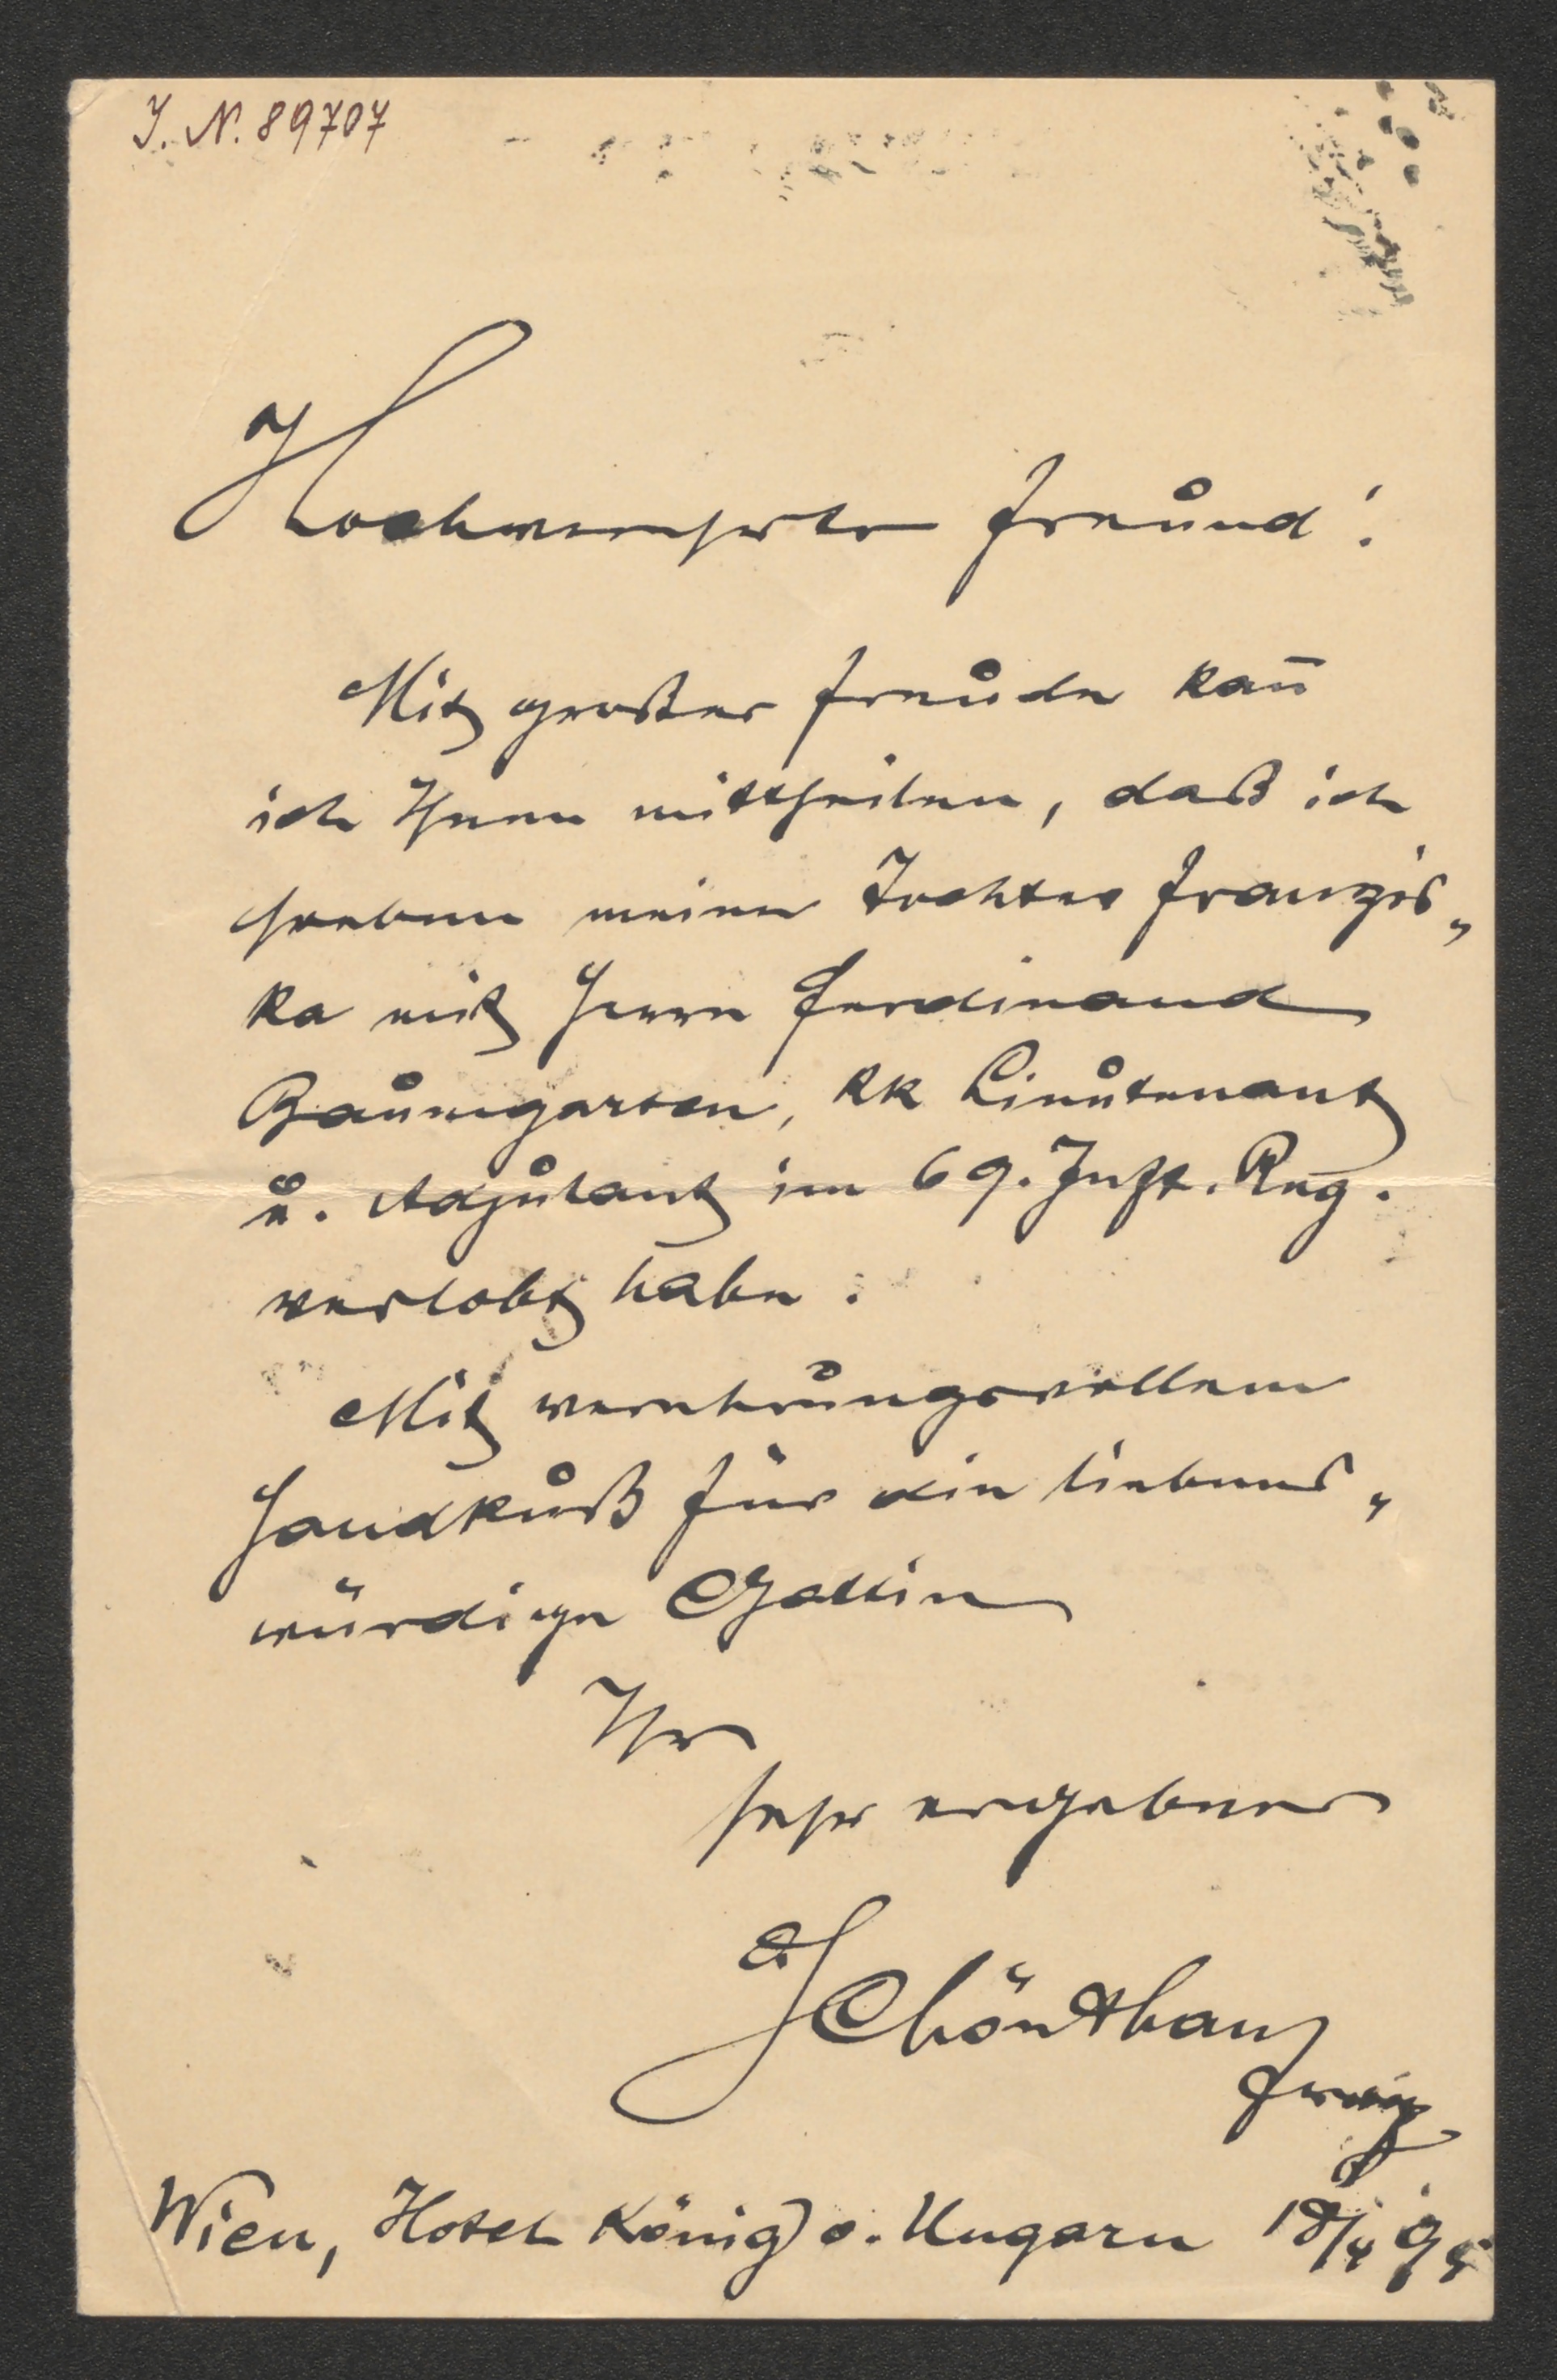 I. N. 89707
Hochverehrter Freund!
Mit großer Freude kan̄
ich Ihnen mittheilen, daß ich
soeben meine Tochter Franzis„
ka mit Herrn Ferdinand
Baumgarten, kk Lieutenant
u. Adjutant im 69. Inft. Reg.
verlobt habe.
Mit verehrungsvollem
Handkuß für die liebens„
würdige Gattin
Ihr
sehr ergebener
Schönthan
Wien, Hotel König v. Ungarn 18/4 95